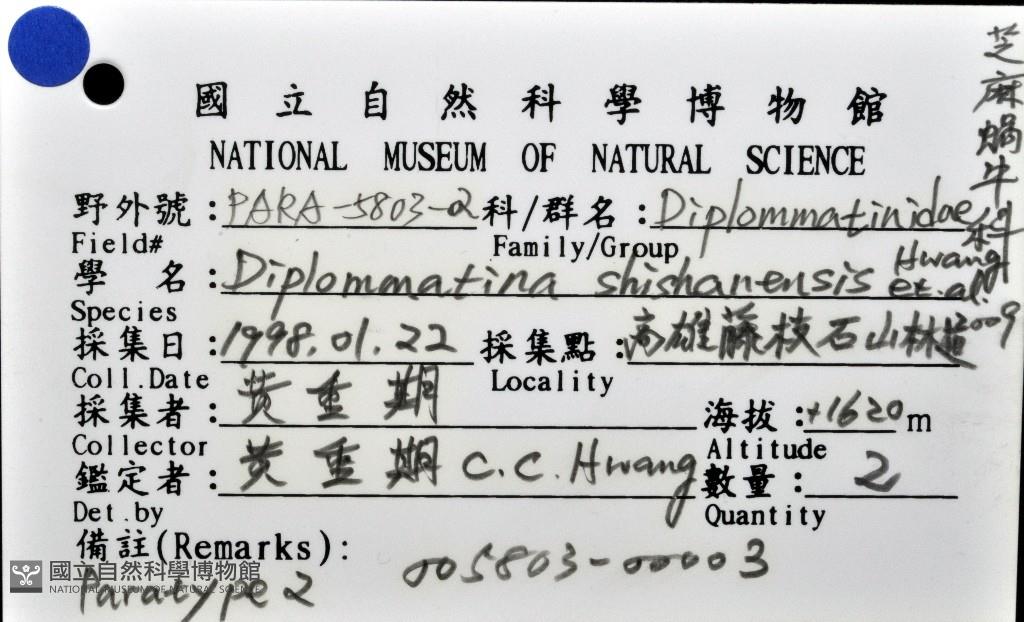 國立自然科學博物館
NATIONAL MUSEUM OF NATURAL SCIENCE
芝麻蝸牛科
野外號：PARA-5803-2 科/群名：Diplommatinidae
Field# Family/Group
學 名：Diplommatina shishanensis Hwang et.al. 2009
Species
採集日：1998.01.22 採集點：高雄藤枝石山林道
Coll.Date Locality
採集者：黃重期 海拔：+1620 m
Collector Altitude
鑑定者：黃重期 C.C.Hwang 數量：2
Det.by Quantity
備註(Remarks)：
005803-00003
Paratype 2
國立自然科學博物館
NATIONAL MUSEUM OF NATURAL SCIENCE